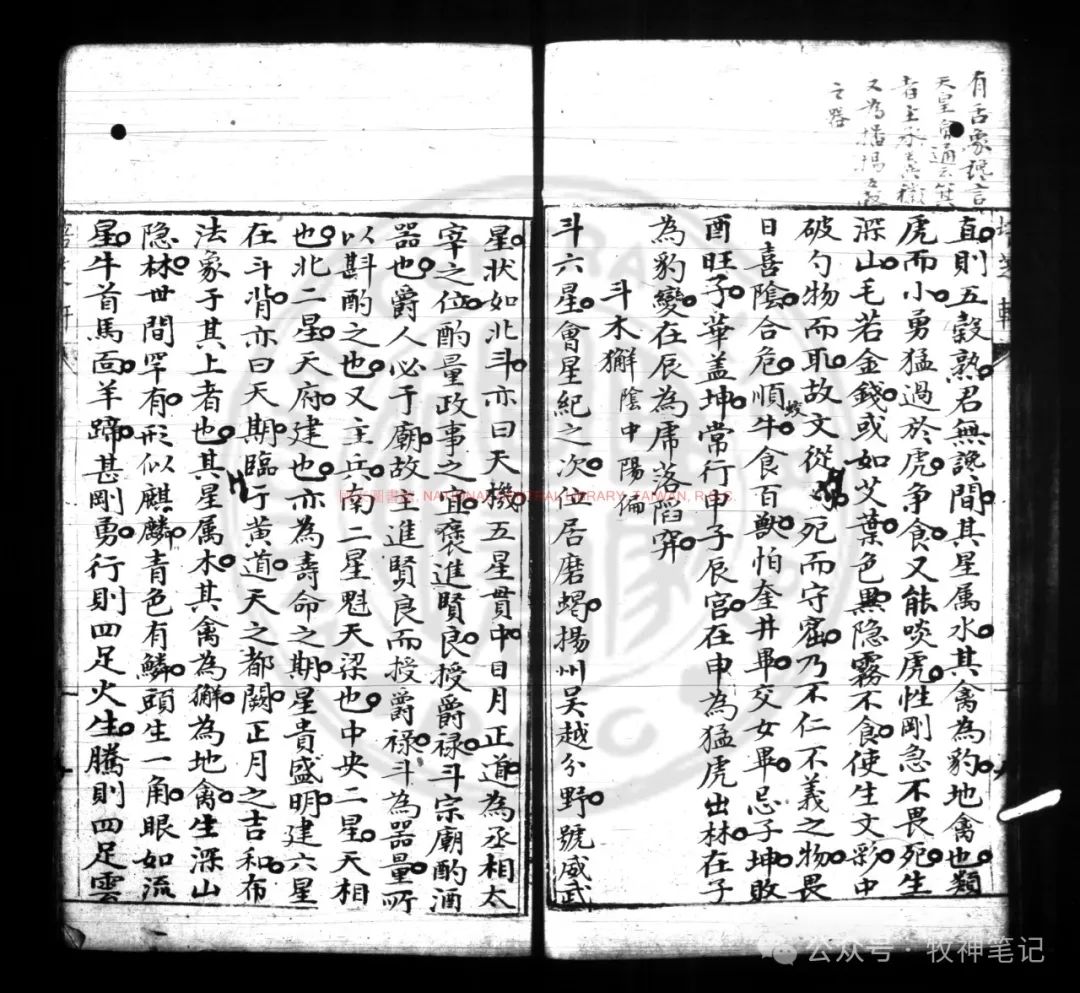 有舌象讒言
天皇會通云箕
又為播揚五穀
之器
直則五穀熟君無讒間其星属水其禽為豹地禽也類
虎而小勇猛過於虎争食又能啖虎性剛急不畏死生
深山毛若金錢或如艾葉色黑隐霧不食使生文彩中
破勺物而取故文從豹死而守窟乃不仁不義之物畏
日喜陰合危順牛蛟食百獸怕奎井畢交女畢忌子坤敗
酉旺子華盖坤常行甲子辰宫在申為猛虎出林在子
為豹變在辰為虎落陷穽
斗木獬陰中陽偏
斗六星會星紀之次位居磨蝎揚州吴越分野號咸武
星状如北斗亦曰天機五星貫中日月正道為丞相太
宰之位酌量政事之宜褒進賢良授爵禄斗宗廟酌酒
器也爵人必于廟故主進賢良而授爵禄斗為器量所
以斟酌之也又主兵南二星魁天梁也中央二星天相
也北二星天府建也亦為壽命之期星貴盛明建六星
在斗背亦曰天期臨行黄道天之都闕正月之吉和布
法象于其上者也其星属木其禽為獬為地禽生深山
隐林世間罕有形似麒麟青色有鱗頭生一角眼如流
星牛首馬面羊蹄甚剛勇行則四足火生騰則四足雲
國家圖書館, NATIONAL CENTRAL LIBRARY, TAIWAN, R.O.C.
公众号·牧神笔记